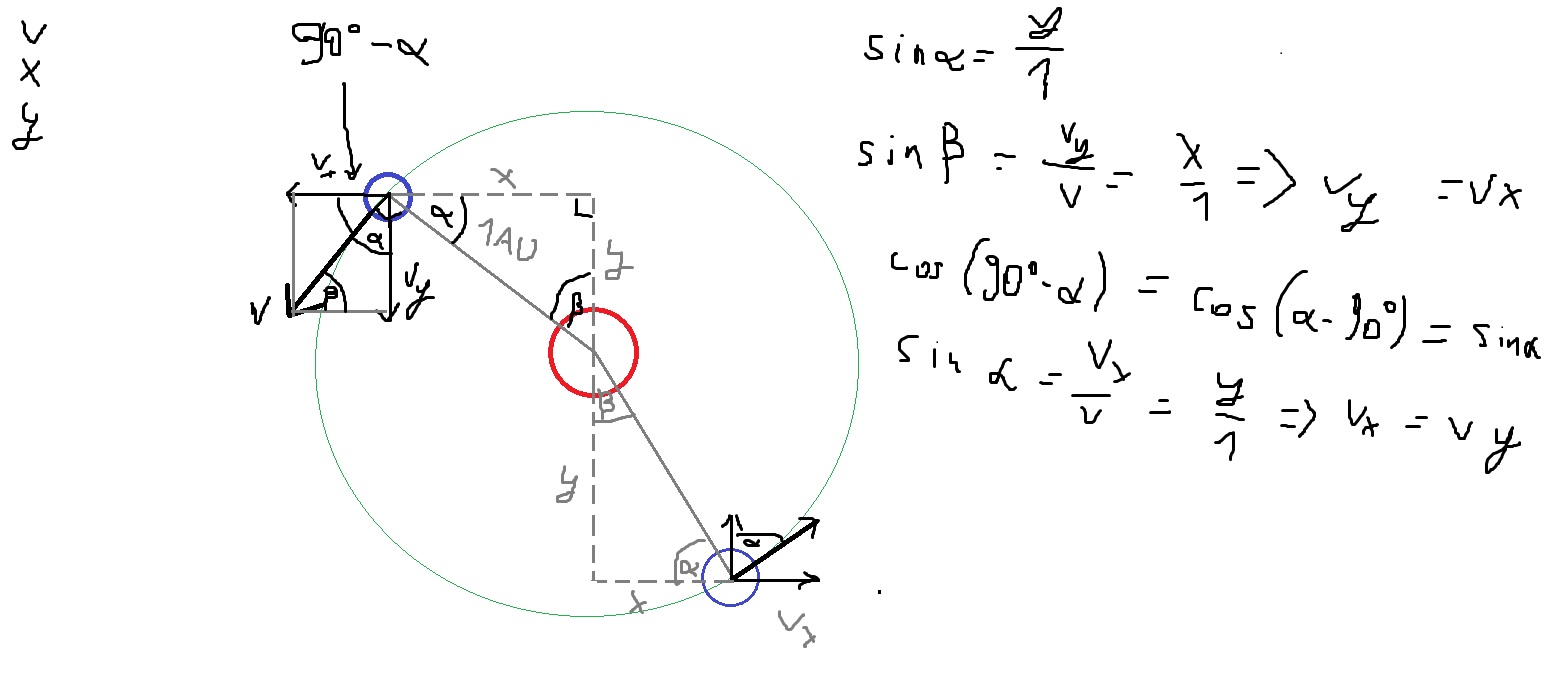 v
x
y
90° - α
vₓ
x
α
1AU
y
α
β
β
v
v_y
β
y
α
α
x
vₓ
sinα = y/1
sin β = v_y/v = x/1 => v_y = vx
cos (90° - α) = cos (α - 90°) = sinα
sin α = vₓ/v = y/1 => vₓ = v y